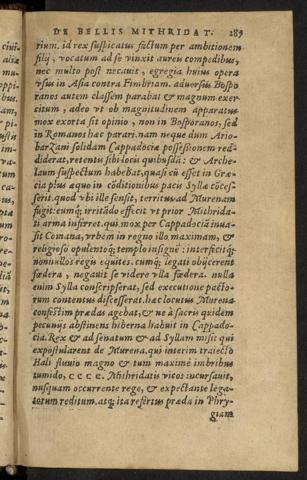 DE BELLIS MITHRIDAT. 289
rium. id rex suspicatus factum per ambitionem
filij, vocatum ad se vinxit aureis compedibus,
nec multo post necauit, egregia huius opera
vsus in Asia contra Fimbriam. aduersus Bospo
ranos autem classem parabat & magnum exer-
citum, adeo vt ob magnitudinem apparatus
mox exorta sit opinio, non in Bosporanos, sed
in Romanos hæc parari. nam neque dum Ario-
barZani solidam Cappadociæ possessionem red-
diderat, retentis sibi locis quibusdã: & Arche-
laum suspectum habebat, quasi cũ esset in Græ-
cia plus æquo in cõditionibus pacis Syllæ cõces-
serit. quod vbi ille sensit, territus ad Murenam
fugit: eumq; irritãdo effecit vt prior Mithrida-
ti arma inferret. qui mox per Cappadociã inua-
sit Comana, vrbem in regno illo maximam, &
religioso opulentoq; templo insignẽ: interfecitq;
nonnullos regis equites. cumq; legati obijcerent
fœdera, negauit se videre vlla fœdera. nulla
enim Sylla conscripserat, sed executione pacto-
rum contentus discesserat. hæc locutus Murena
confestim prædas agebat, & ne à sacris quidem
pecunijs abstinens hiberna habuit in Cappado-
cia. Rex & ad senatum & ad Syllam misit qui
expostularent de Murena. qui interim traiecto
Hali fluuio magno & tum maximè imbribus
tumido, cccc. Mithridatis vicos incursauit,
nusquam occurrente rege, & expectante lega-
torum reditum. atq; ita refertus præda in Phry-
giam